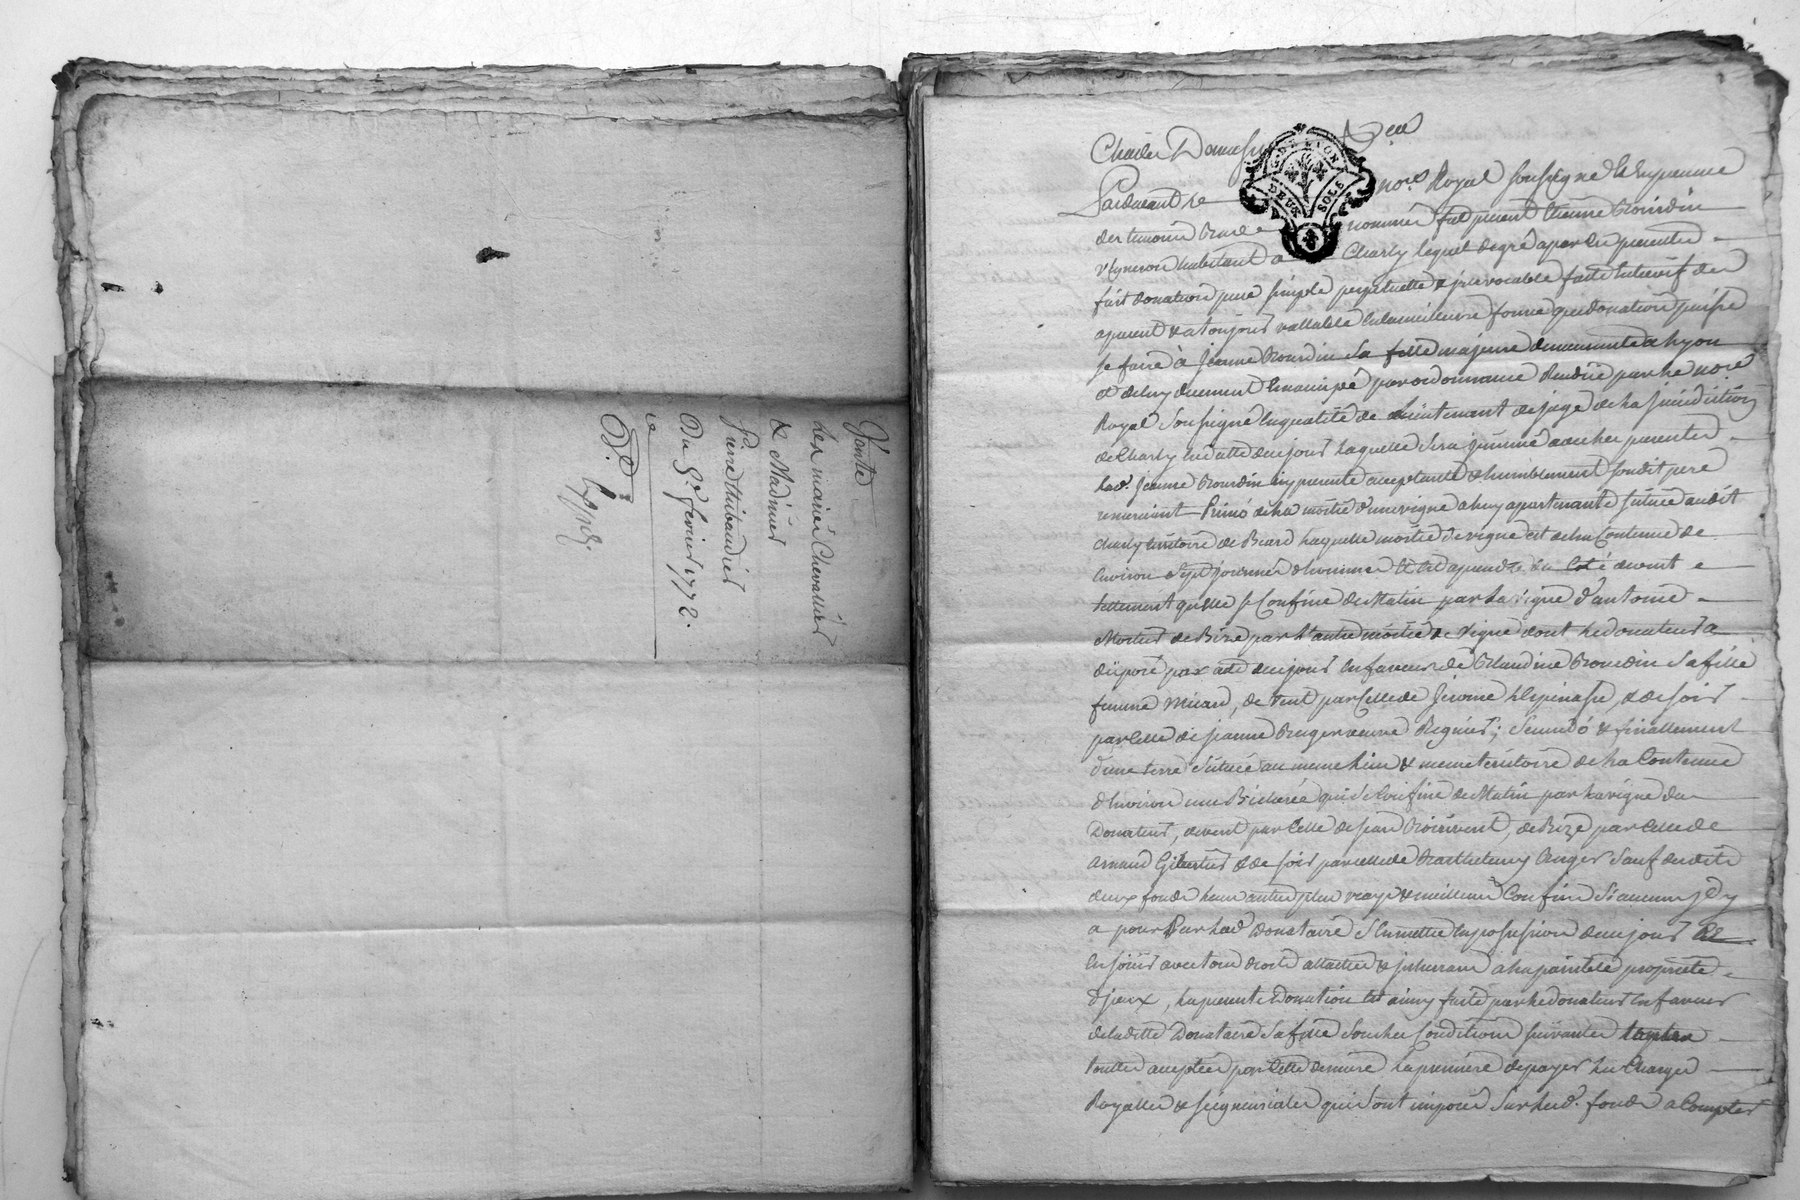 Vente
Les mariés Chevallier
& Madinier
Pierre Thibaudier
Du 5e. fevrier 1772.
Charles
G. DE LYON
DEUX SOLS
Pardevant le nore. Royal soussigné & En presence
des temoins nommés fut present Etienne Bourdin
vigneron habitant a Charly lequel de gré a par les presentes
fait donation pure simple perpetuelle & jrrevocable faite Entrevif des
apresent & a toujours vallable en la meilleure forme que donation puisse
se faire à Jeanne Bourdin sa fille majeure demeurante a Lyon
et de luy duement Emancipée par ordonnance Rendüe par le nore
Royal soussigné en qualité de Lieutenant de juge de la jurisdiction
de Charly en datte de ce jour laquelle sera jointe aux presentes
lad. Jeanne Bourdin icy presente acceptante & humblement sondit pere
remerciant Primò de la moitié d'une vigne a luy apartenante située audit
Charly territoire de laquelle moitié de vigne est de la Contenue de
Environ sept journées d'homme & est a prendre du Coté devent
tellement qu'elle se Confine de Matin par la vigne d'antoine
de Bize par l'autre moitié de vigne dont le donateur a
disposé par acte de ce jour en faveur de Claudine Bourdin sa fille
femme , de vent par Celle de Jerome Lespinasse, & de soir
par Celle de jeanne veuve ; Secundó & finallement
d'une terre située au meme Lieu & meme territoire de la Contenue
d'Environ une Bicherée qui se Confine de Matin par la vigne du
Donateur, de vent par Celle de jean , de Bize par Celle de
& de soir par Celle de Barthelemy sauf desdits
deux fonds leurs autres plus vrays & meilleurs Confins si aucuns jl y
a pour Par lad. Donataire s'En mettre En possession de ce jour
En joüir avec tous droits attachés & jnherants a la pointe de proprieté
d'jceux, la presente Donation est ainsy faite par le donateur en faveur
de laditte Donataire sa fille sous les Conditions suivantes
toutes acceptées par Cette derniere la premiere de payer les Charges
Royalles & seigneuriales qui sont imposés sur lesd. fonds a Compter